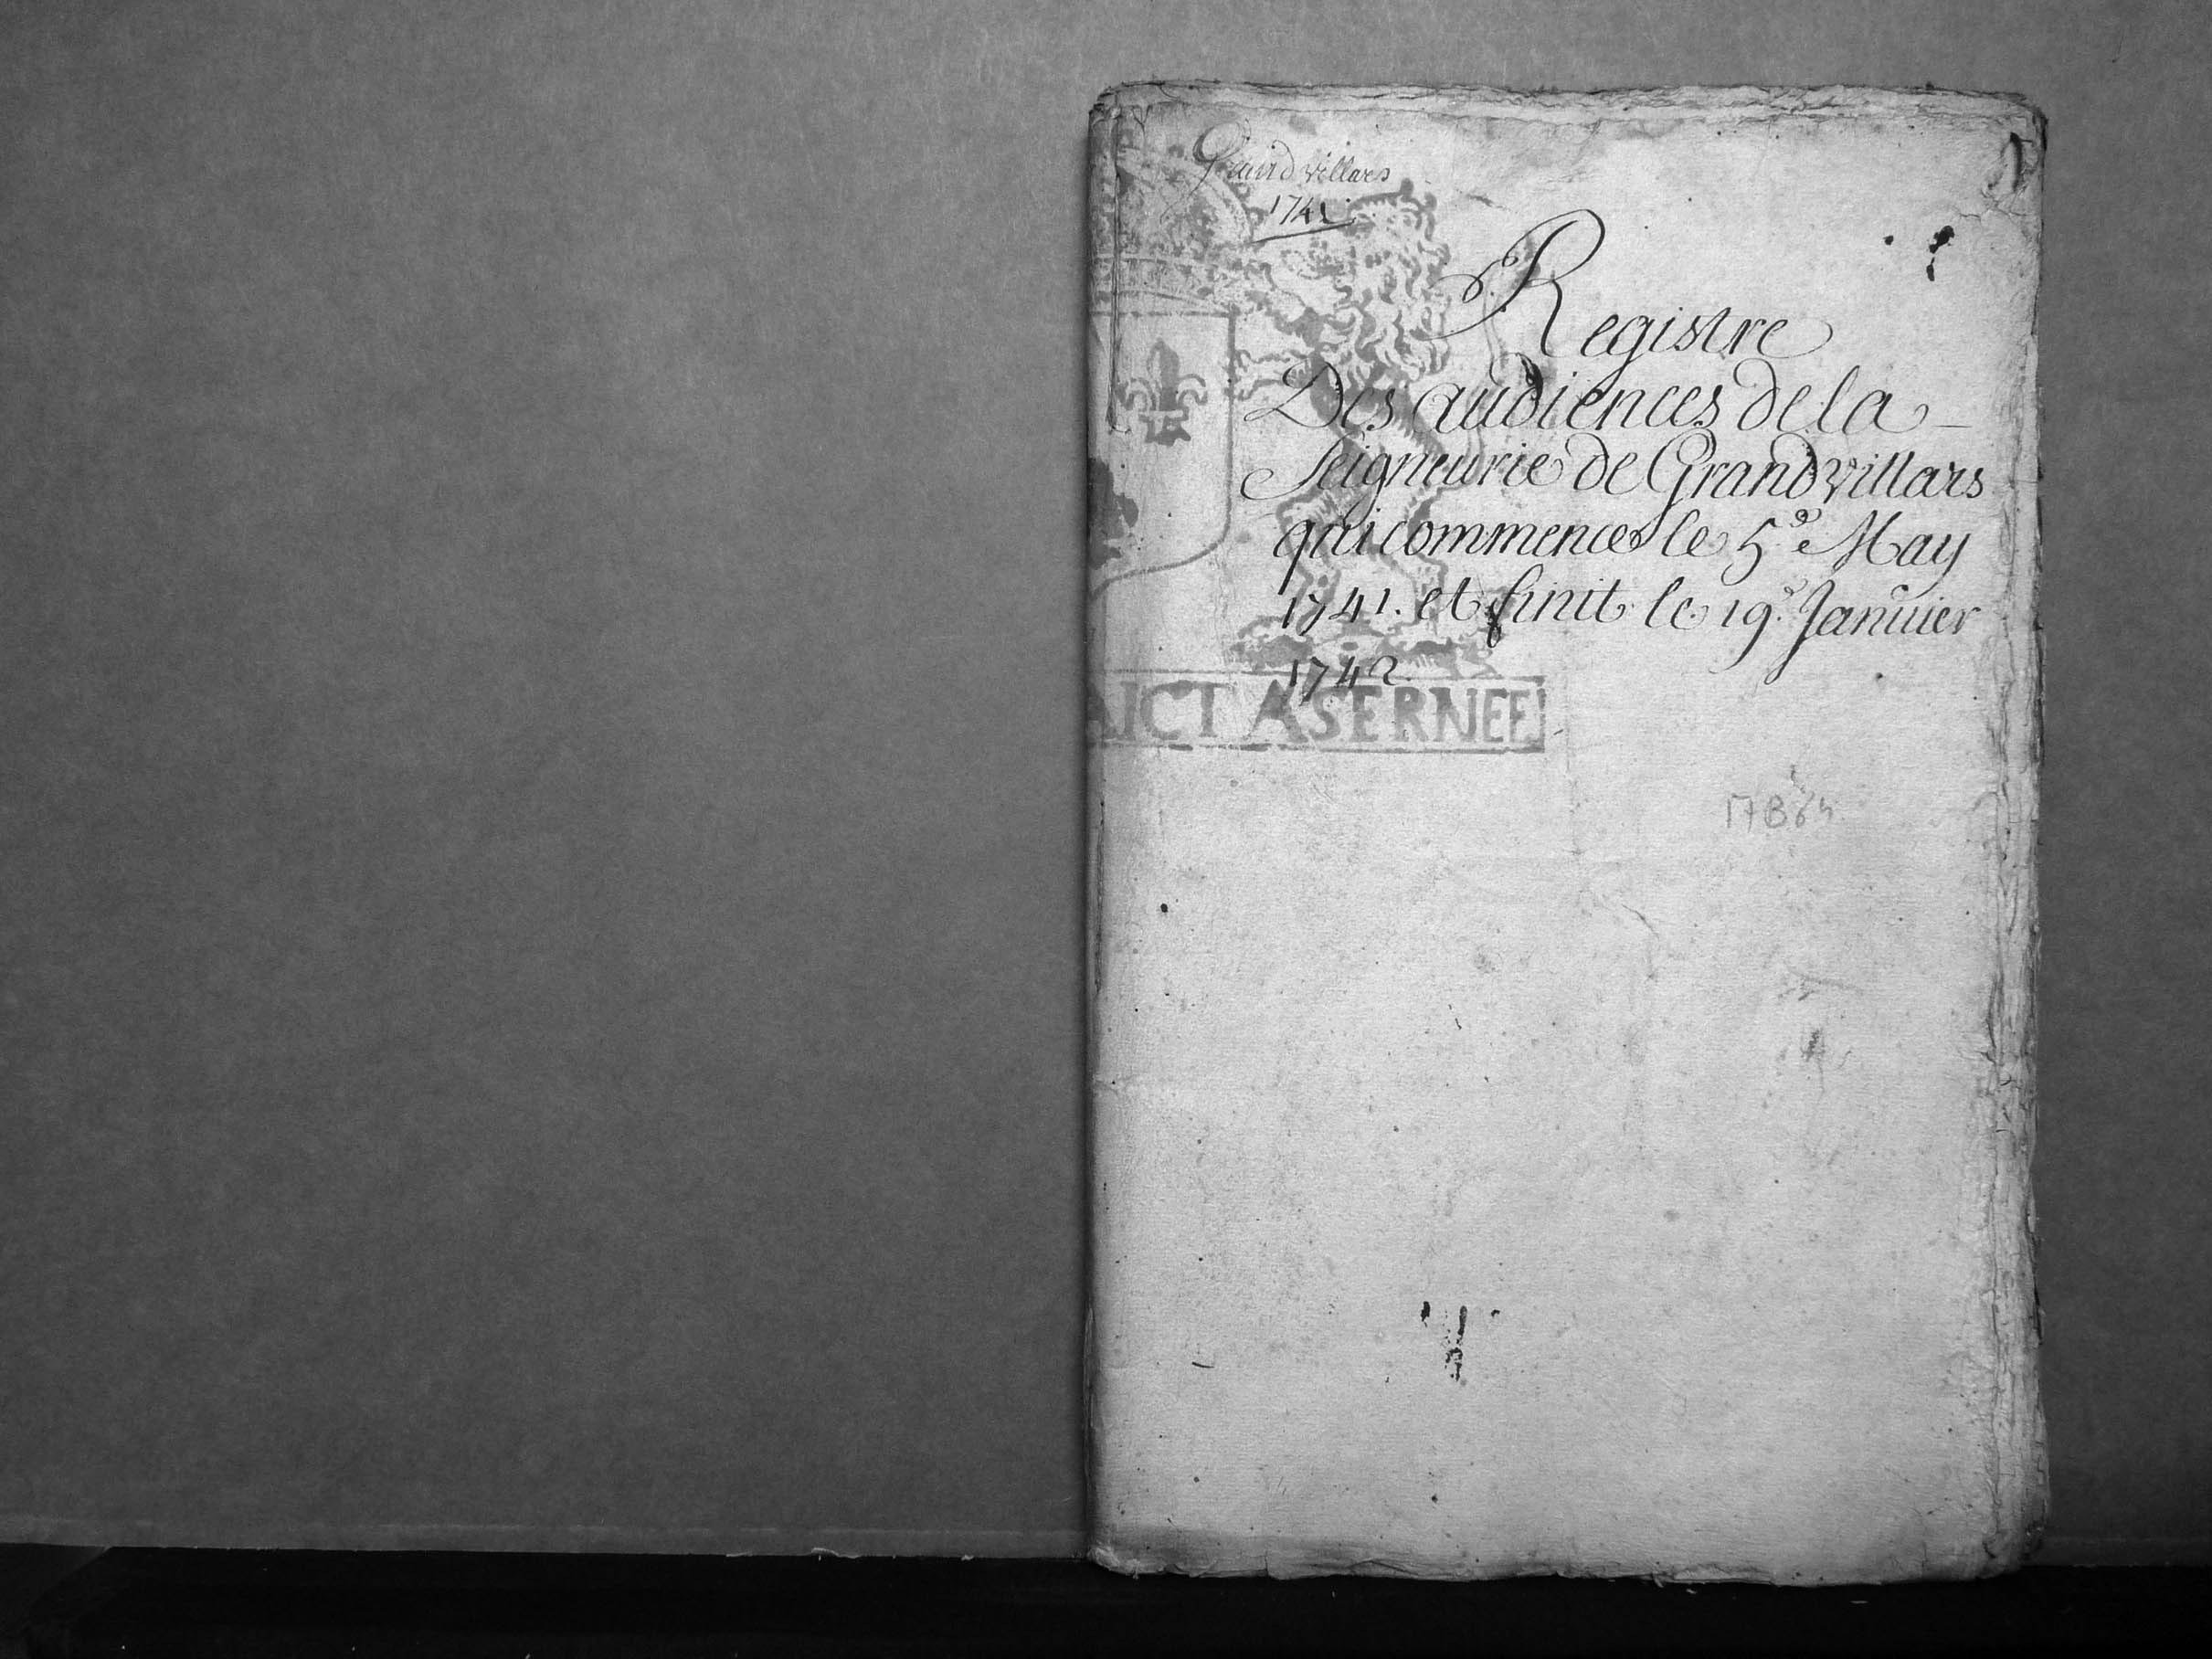 Grandvillars
1741
Registre
Des audiences de la
Seigneurie de Grandvillars
qui commence le 5e May
1741. et finit le 19e Januier
1742.
AICT ASERNEE
17B64